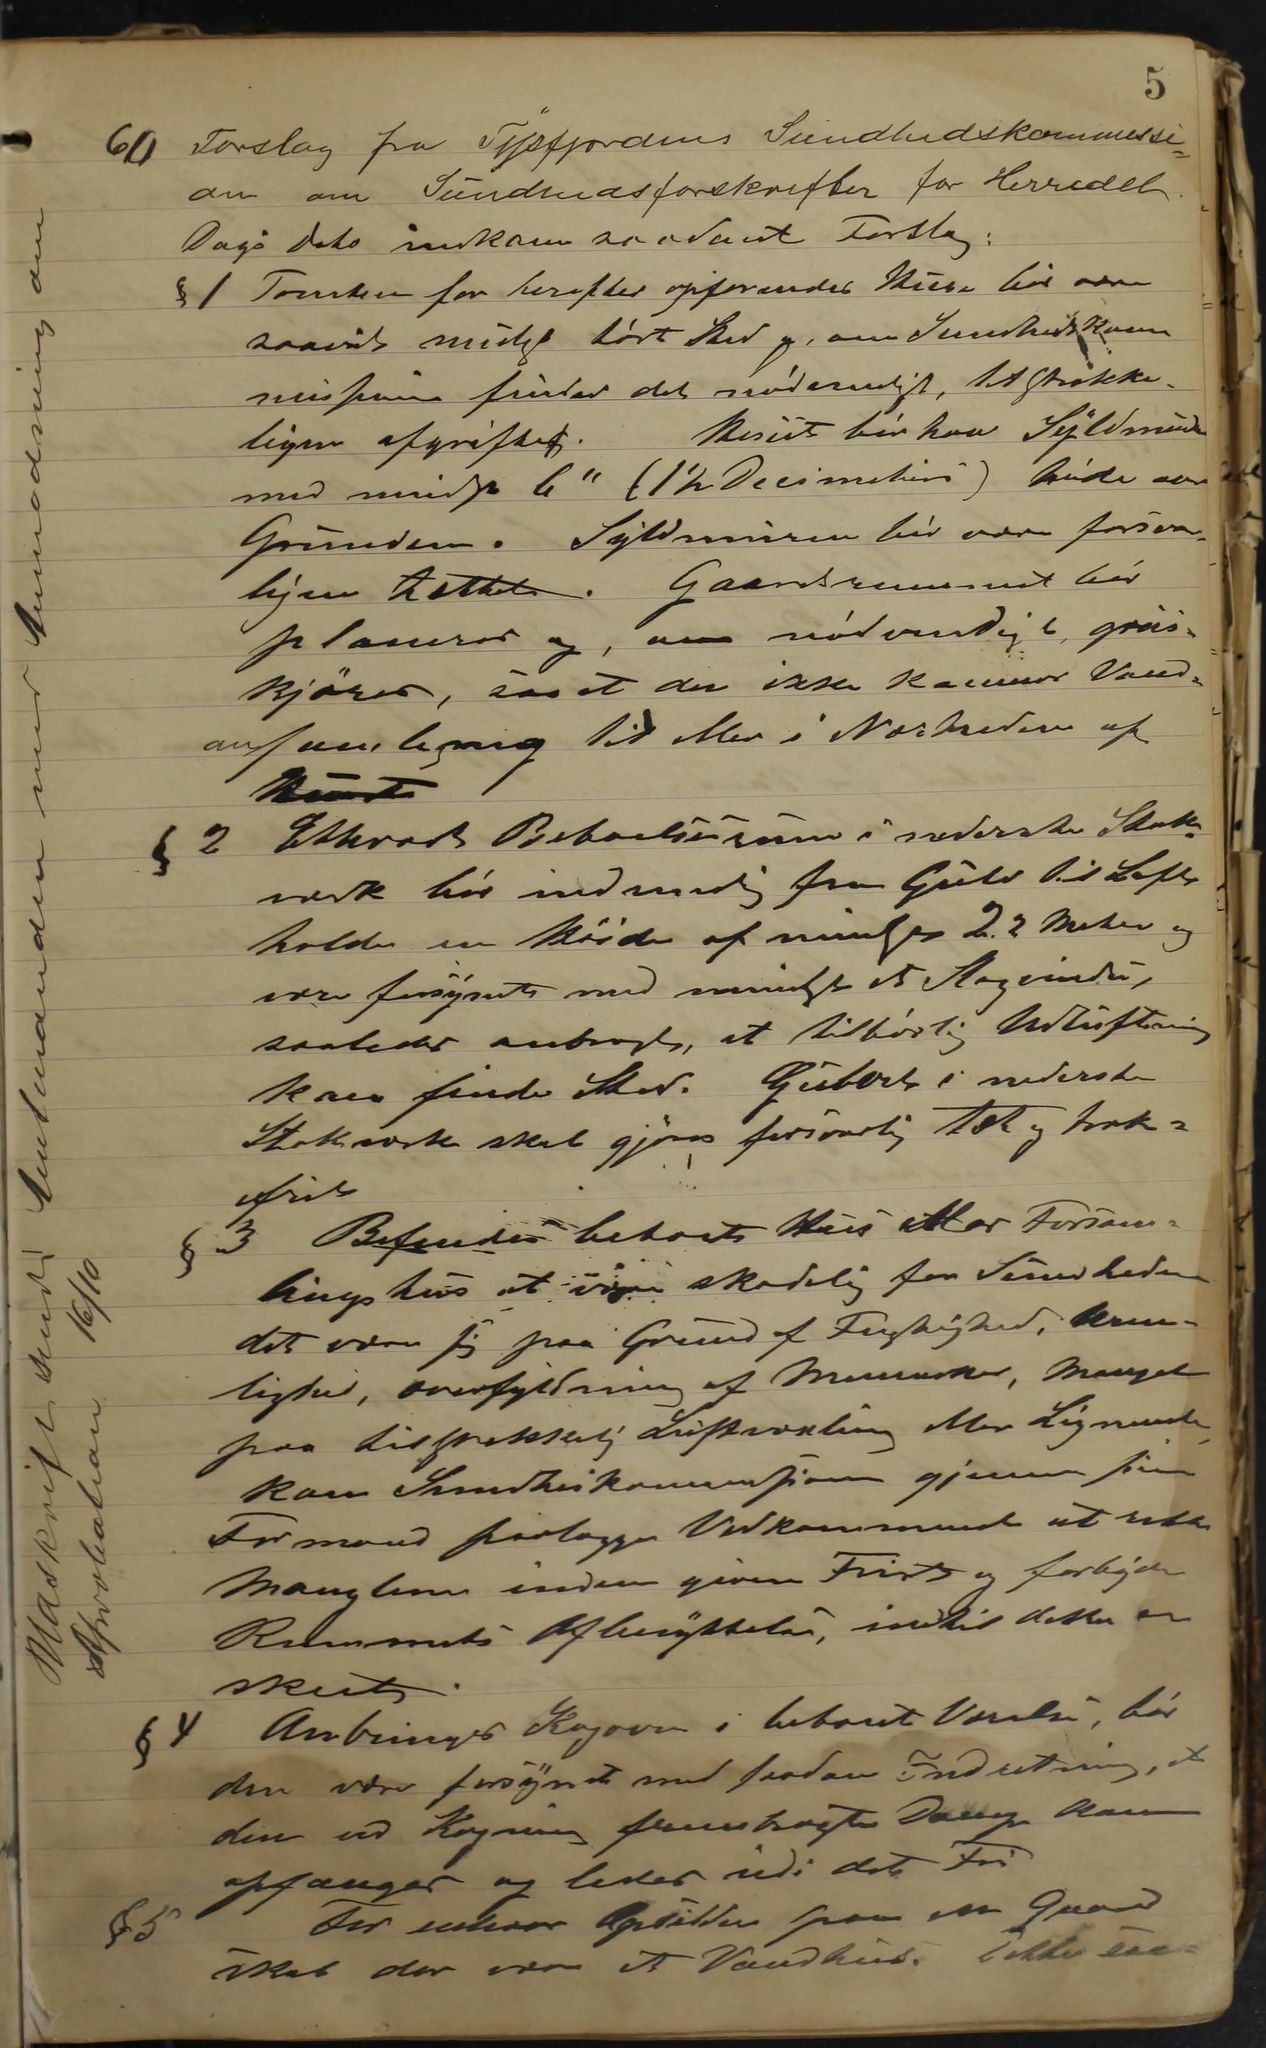 5
60 Forslag fra Tysfjordens Sundhedskommissi=
on om Sundhedsforskrifter for Herredet.
Dags Dato indkom saadant Forslag:
§ 1 Tomten for herefter opførendes Huse bør være
saavidt muligt tørt Sted og, om Sundhedskom
missionen finder det nødvendigt, tilstrække-
ligen afgrøftet. Huset bør have Syldmure
med mindst 6" (1½ Decimeters) Høide over
Grunden. Syldmuren bør være forsvar-
ligen tættet. Gaardsrummet bør
planeres og, om nødvendigt, grus-
kjøres, saa at der ikke kommer Vand-
ansamlinger til eller i Nærheden af
Huset
§ 2 Ethvert Beboelsesrum i nederste Stok-
værk bør indvendig fra Gulv til Loft
holde en Høide af mindst 2.2 Meter og
være forsynet med mindst et Slagvindu,
saaledes anbragt, at tilbørlig Udluftning
kan finde Sted. Gulvet i nederste
Stokværk skal gjøres forsvarlig tæt og træk=
frit
§ 3 Befindes beboet Hus eller Forsam=
lingshus at være skadelig for Sundheden
det være sig paa Grund af Fugtighed, Uren-
lighed, Overfyldning af Mennesker, Mangel
paa tilstrækkelig Luftvexling eller Lignende,
kan Sundhedskommissionen gjennem sin
Formand paalægge Vedkommende at rette
Manglerne inden given Frist og forbyde
Rummets Afbenyttelse, indtil dette er
skeet.
§ 4 Anbringes Kogeovn i beboet Værelse, bør
den være forsynet med saadan Indretning, at
den ved Kogning frembragte Damp kan
opfanges og ledes ud i det Fri
§ 5 For enhver Opsidder paa en Gaard
skal der være et Vandhus. Dette saa-
Udskrift sendt Amtmanden med Anmodning om
Approbation 16/10